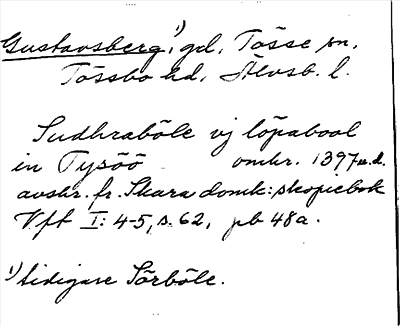 Gustavsberg,¹⁾ gd, Tösse sn,
Tössbo hd, Älvsb. l.
Sudhraböle vj löpabool
in Tysöö omkr. 1397 u.d.
avskr. fr. Skara domk:s kopiebok
Vft I: 4-5, s. 62, pb 48a.
¹⁾ tidigare Sörböle.